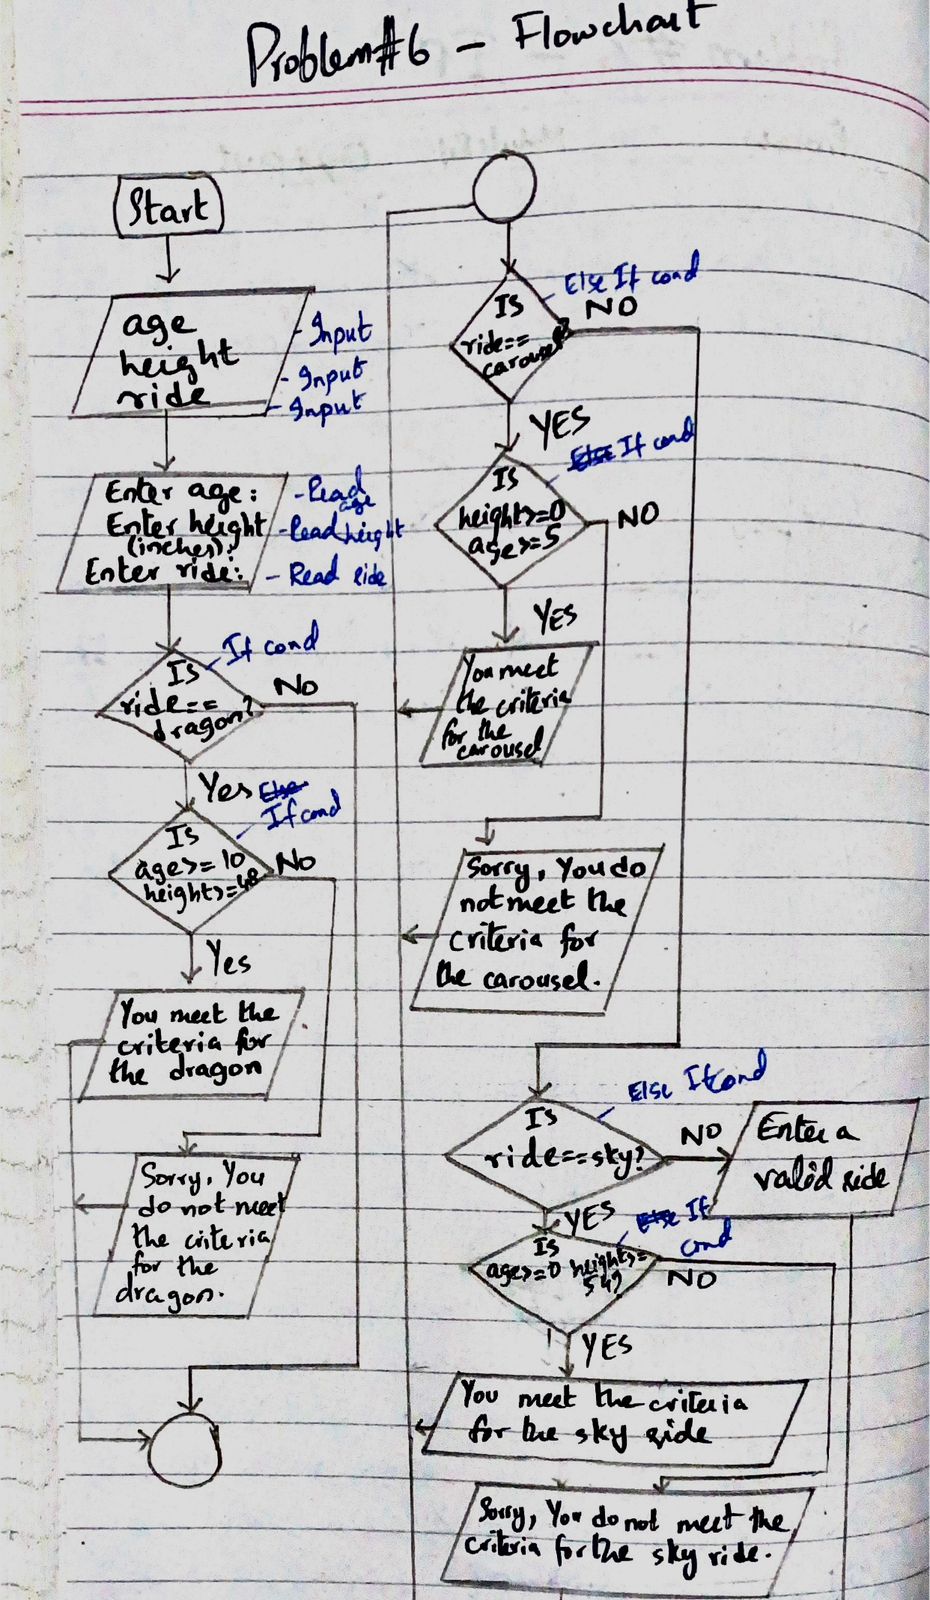 Problem#6 - Flowchart
Start
age
height
ride
- Input
- Input
- Input
Enter age:
Enter height
(inches):
Enter ride:
- Read
age
- Read height
- Read ride
If cond
Is
ride==
dragon?
NO
Yes
Else
If cond
Is
age>= 10
height>=48
No
Yes
You meet the
criteria for
the dragon
Sorry, You
do not meet
the criteria
for the
dragon.
Else If cond
Is
ride==
carousel?
NO
YES
Else If cond
Is
height>=0
age>=5
NO
YES
You meet
the criteria
for the
carousel
Sorry, You do
not meet the
criteria for
the carousel.
Else If cond
Is
ride==sky?
NO
Enter a
valid ride
YES
Else If
cond
Is
age>=0 height>=
54?
NO
YES
You meet the criteria
for the sky ride
Sorry, You do not meet the
criteria for the sky ride.